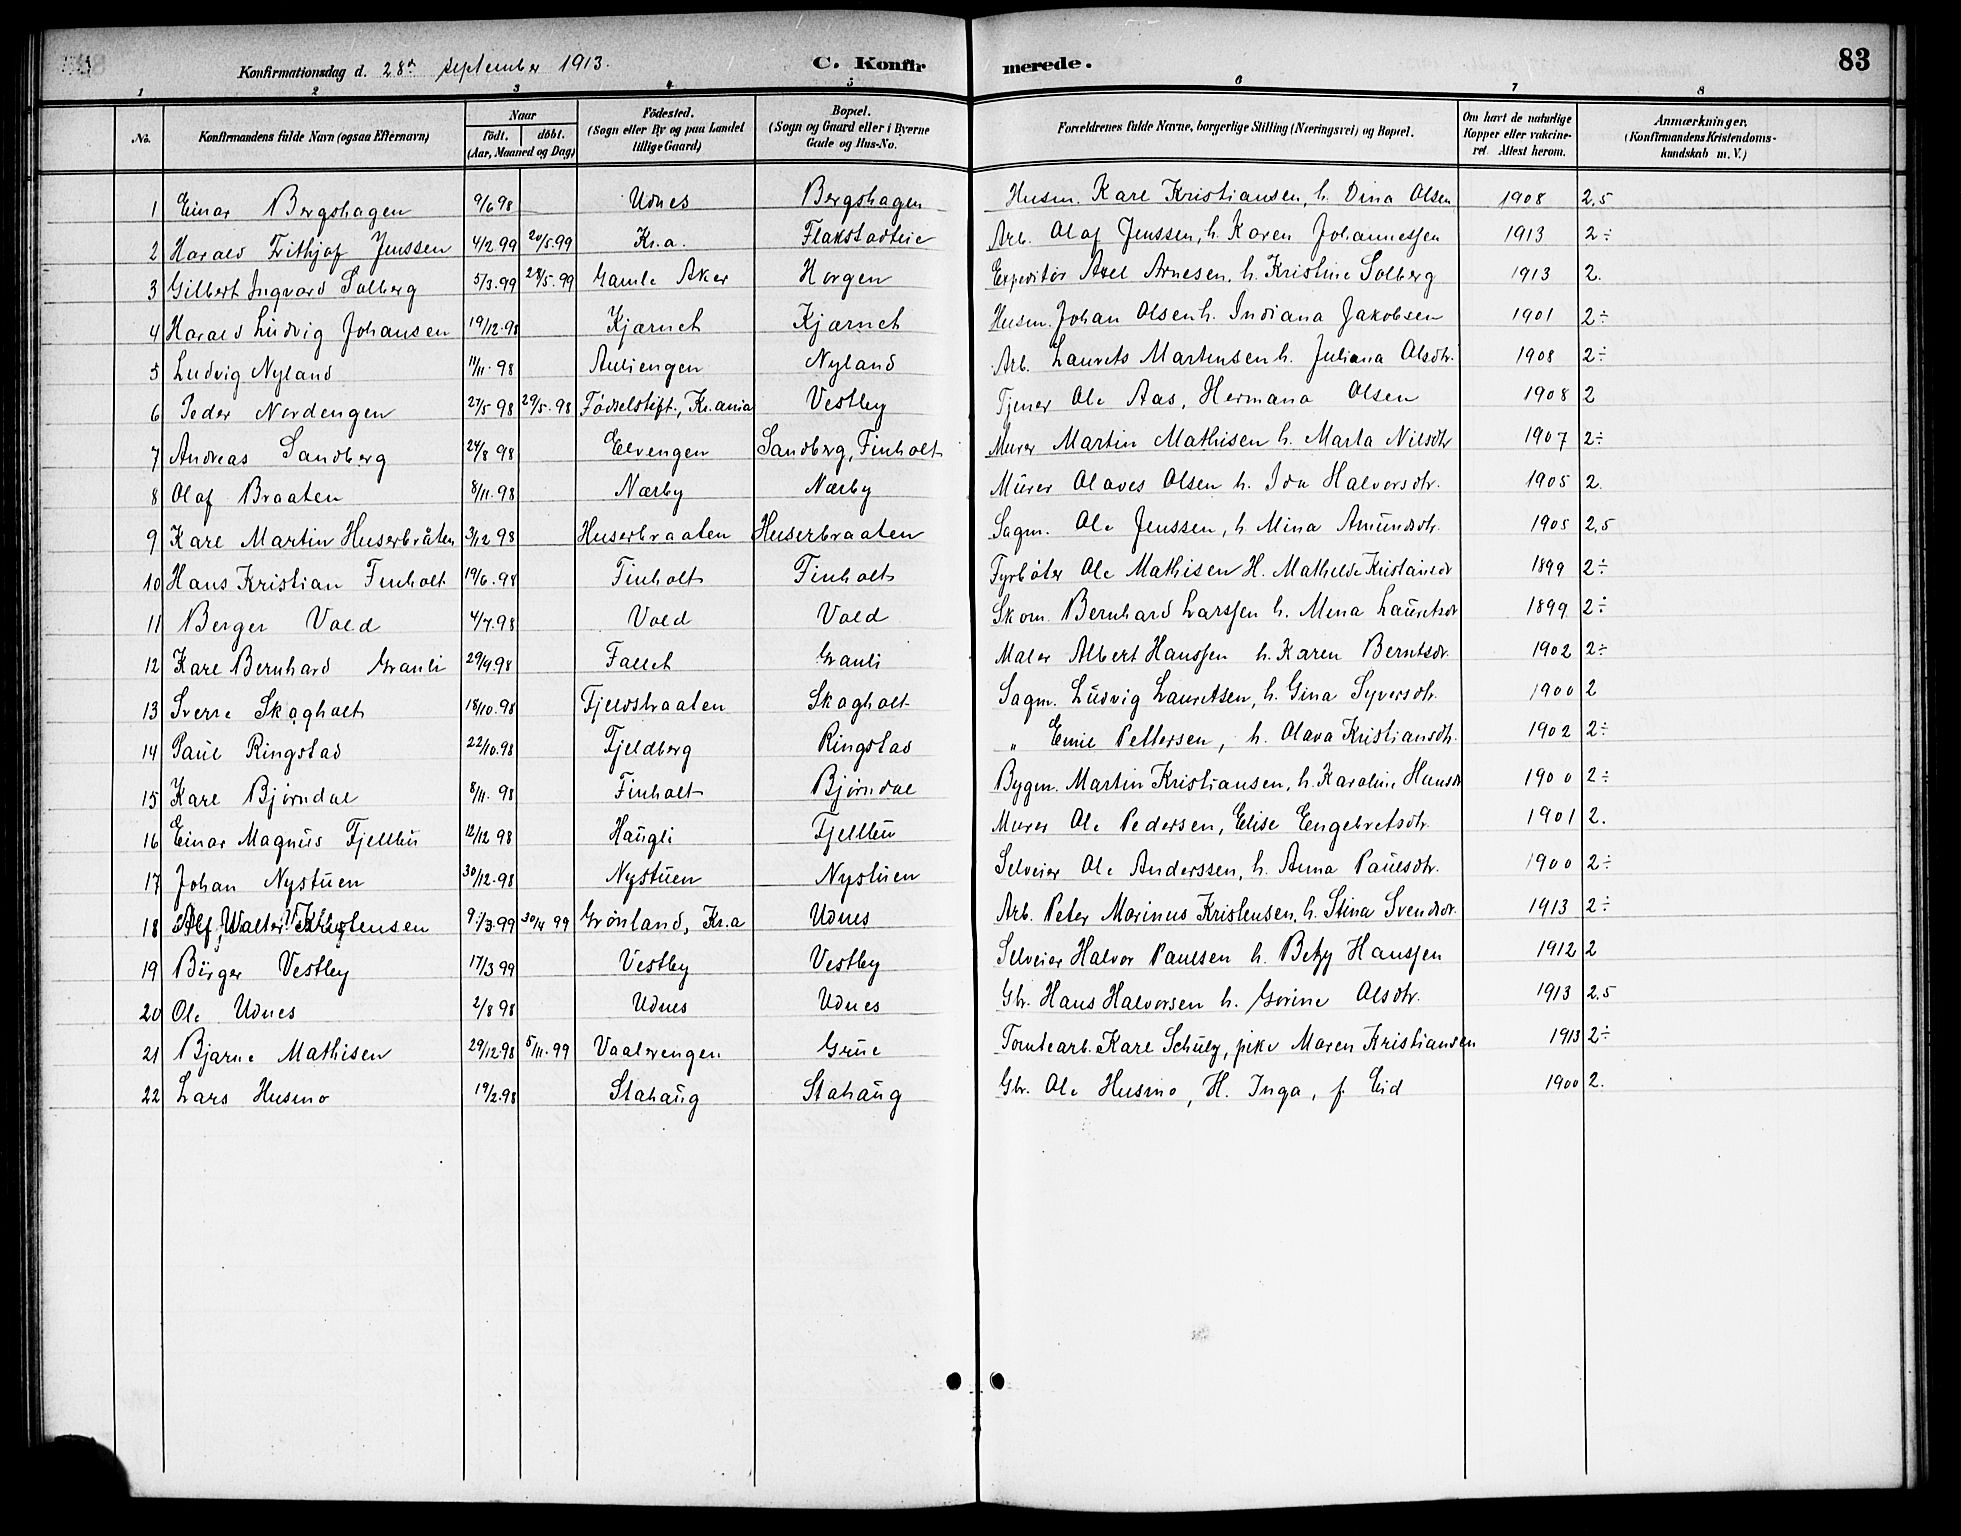 Konfirmationsdag d. 28de september 1913. C. Konfirmerede. 83
1 2 3 4 5 6 7 8
No. Konfirmandens fulde Navn (ogsaa Efternavn) Naar födt. döbt. (Aar, Maaned og Dag) Födested. (Sogn eller By og paa Landet tillige Gaard) Bopæl. (Sogn og Gaard eller i Byerne Gade og Hus-No. Forældrenes fulde Navne, borgerlige Stilling (Næringsvei) og Bopæl. Om havt de naturlige Kopper eller vakcineret. Attest herom. Anmærkninger. (Konfirmandens Kristendomskundskab m. V.)
1 Einar Bergshagen 9/6 98 Udnes Bergshagen Husm. Karl Kristiansen, h. Dina Olsen 1908 2,5
2 Harald Frithjof Jenssen 4/2 99 24/5.99 Kr.a. Flakstadteie Arb. Olaf Jenssen, h. Karen Johannessen 1913 2÷
3 Gilbert Ingvard Solberg 5/3.99 28/5.99 Gamle Aker Horgen Expeditör Axel Arnesen, h. Kristine Solberg 1913 2.
4 Harald Ludvig Johansen 19/12.98 Kjærnet Kjærnet Husm. Johan Olsen h. Indiana Jakobsen 1901 2÷
5 Ludvig Nyland 11/11.98 Auliengen Nyland Arb. Laurets Martinsen h. Juliana Olsdtr. 1908 2÷
6 Peder Nordengen 27/5 98 29/5.98 Födselstift., Kr.ania Vestby Tjener Ole Aas, Hermana Olsen 1908 2
7 Andreas Sandberg 24/8 98 Elvengen Sandberg, Finholt Murer Martin Mathisen h. Marta Nilsdtr 1907 2÷
8 Olaf Braaten 8/11.98 Nærby Nærby Murer Olaves Olsen h. Ida Halvorsdtr. 1905 2.
9 Karl Martin Huserbråten 3/12 98 Huserbraaten Huserbraaten Sagm. Ole Jenssen, h. Mina Amundsdtr. 1905 2,5
10 Hans Kristian Finholt 19/6.98 Finholt Finholt Fyrböter Ole Mathisen H. Mathilde Kristiansdr 1899 2÷
11 Berger Vold 4/7.98 Vold Vold Skom. Bernhard Larssen h. Mina Lauritsdr 1899 2÷
12 Karl Bernhard Granli 29/9.98 Fallet Granli Maler Albert Hanssen h. Karen Berntsdr. 1902 2÷
13 Sverre Skogholt 18/10.98 Fjeldsbraaten Skogholt Sagm. Ludvig Lauritsen, h. Gina Syversdtr. 1900 2
14 Paul Ringstad 22/10.98 Fjeldberg Ringstad " Emil Pettersen, h. Olava Kristiansdtr. 1902 2÷
15 Karl Bjørndal 8/11.98 Finholt Bjørndal Bygm. Martin Kristiansen, h. Karoline Hansdr 1900 2÷
16 Einar Magnus Fjellbu 12/12 98 Haugli Fjellbu Murer Ole Pedersen, Elise Engebretsdtr. 1901 2.
17 Johan Nystuen 30/12.98 Nystuen Nystuen Selveier Ole Anderssen, h. Anna Paulsdtr. 1900 2÷
18 Alf Walter Kristensen 9/3.99 30/4 99 Grönland, Kr.a Udnes Arb. Peter Marinus Kristensen, h. Stina Svendsdr. 1913 2÷
19 Birger Vestby 17/3 99 Vestby Vestby Selveier Halvor Paulsen h. Betzy Hanssen 1912 2
20 Ole Udnes 2/8 98 Udnes Udnes Gbr. Hans Halvorsen h. Gorine Olsdtr. 1913 2.5
21 Bjarne Mathisen 29/12.98 5/11.99 Vaalerengen Grue Tomtearb. Karl Schulz, pike Maren Kristiansen 1913 2÷
22 Lars Husmo 19/2.98 Stahaug Stahaug Gbr. Ole Husmo, H. Inga, f. Eid 1900 2.